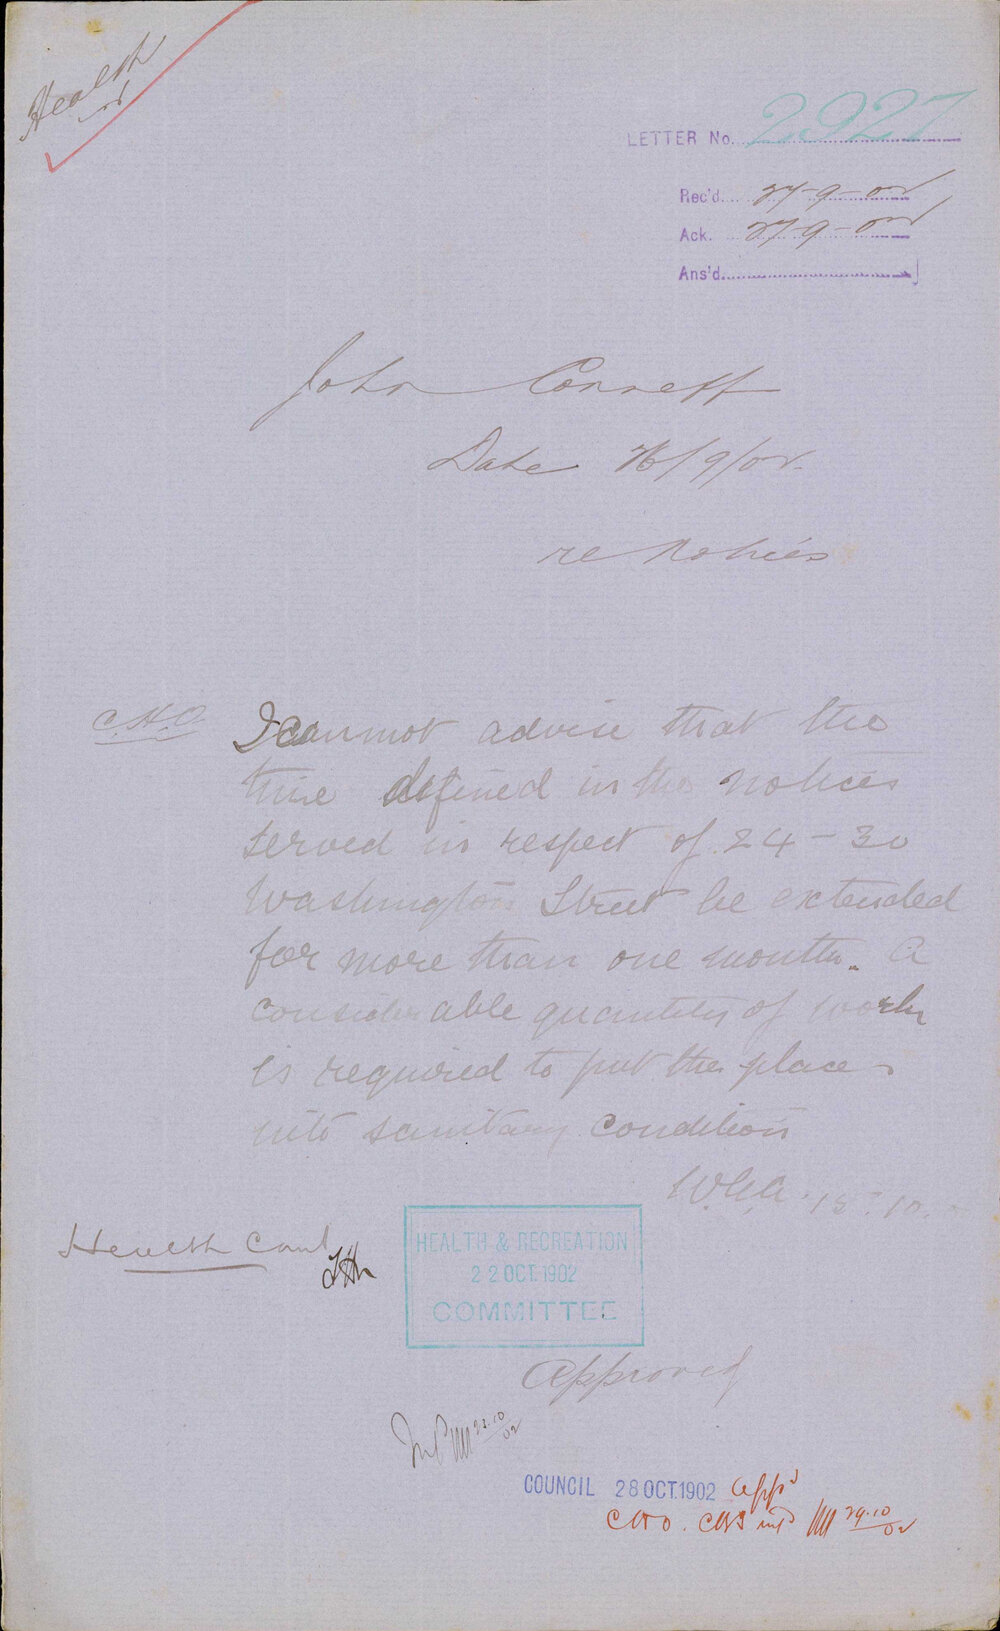 Health
LETTER No. 2927
Rec'd. 27-9-02
Ack. 27-9-02
Ans'd.
John Connett
Date 26/9/02.
re Notices
C.H.O. I cannot advise that the
time defined in the notices
served in respect of 24-30
Washington Street be extended
for more than one month. A
considerable quantity of work
is required to put the place
into sanitary condition
W.G.A. 15.10.
Health Com
HEALTH & RECREATION
22 OCT. 1902
COMMITTEE
Approved
23.10
02
COUNCIL 28 OCT. 1902 appd
CHO. CBS 29.10
02